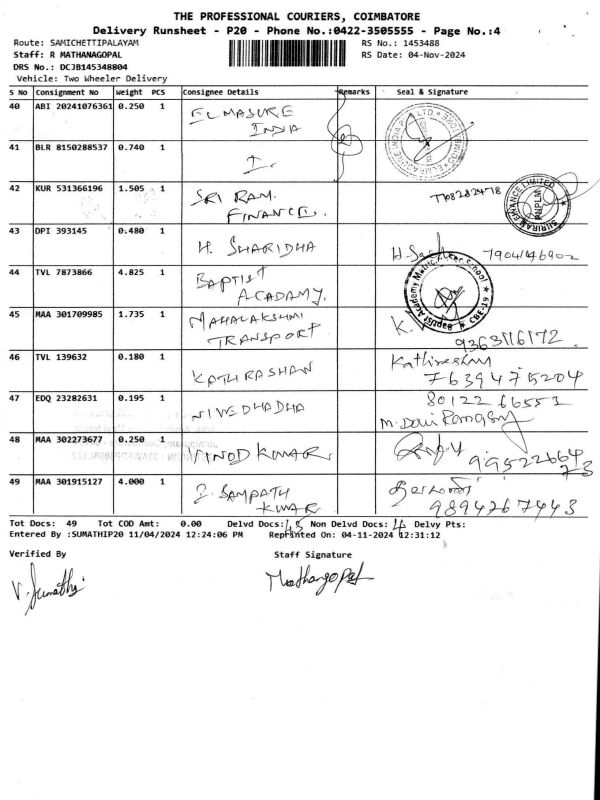 THE PROFESSIONAL COURIERS, COIMBATORE
Delivery Runsheet - P20 - Phone No.:0422-3505555 - Page No.:4
Route: SAMICHETTIPALAYAM RS No.: 1453488
Staff: R MATHANAGOPAL RS Date: 04-Nov-2024
DRS No.: DCJB145348804
Vehicle: Two Wheeler Delivery
S No Consignment No Weight PCS Consignee Details Remarks Seal & Signature
40 ABI 20241076361 0.250 1 ELMASURE INDIA
41 BLR 8150288537 0.740 1 I.
42 KUR 531366196 1.505 1 SRI RAM. FINANCE.
SHRIRAM FINANCE LIMITED
43 DPI 393145 0.480 1 H. SHARIDHA 7904146902
44 TVL 7873866 4.825 1 BAPTIST ACADAMY.
Baptist Academy Matric. Hr. Sec. School CBE-19
45 MAA 301709985 1.735 1 MAHALAKSHMI TRANSPORT K. 9363116172.
46 TVL 139632 0.180 1 KATHIRASHAN Kathireshan 7639475204
47 EDQ 23282631 0.195 1 NIVEDHADHA 8012266553
48 MAA 302273677 0.250 1 VINOD KUMAR 9952266473
49 MAA 301915127 4.000 1 SAMPATH KUMAR 9894267443
Tot Docs: 49 Tot COD Amt: 0.00 Delvd Docs: 45 Non Delvd Docs: 4 Delvy Pts:
Entered By :SUMATHIP20 11/04/2024 12:24:06 PM Reprinted On: 04-11-2024 12:31:12
Verified By Staff Signature
V. Sumathi Mathangopal